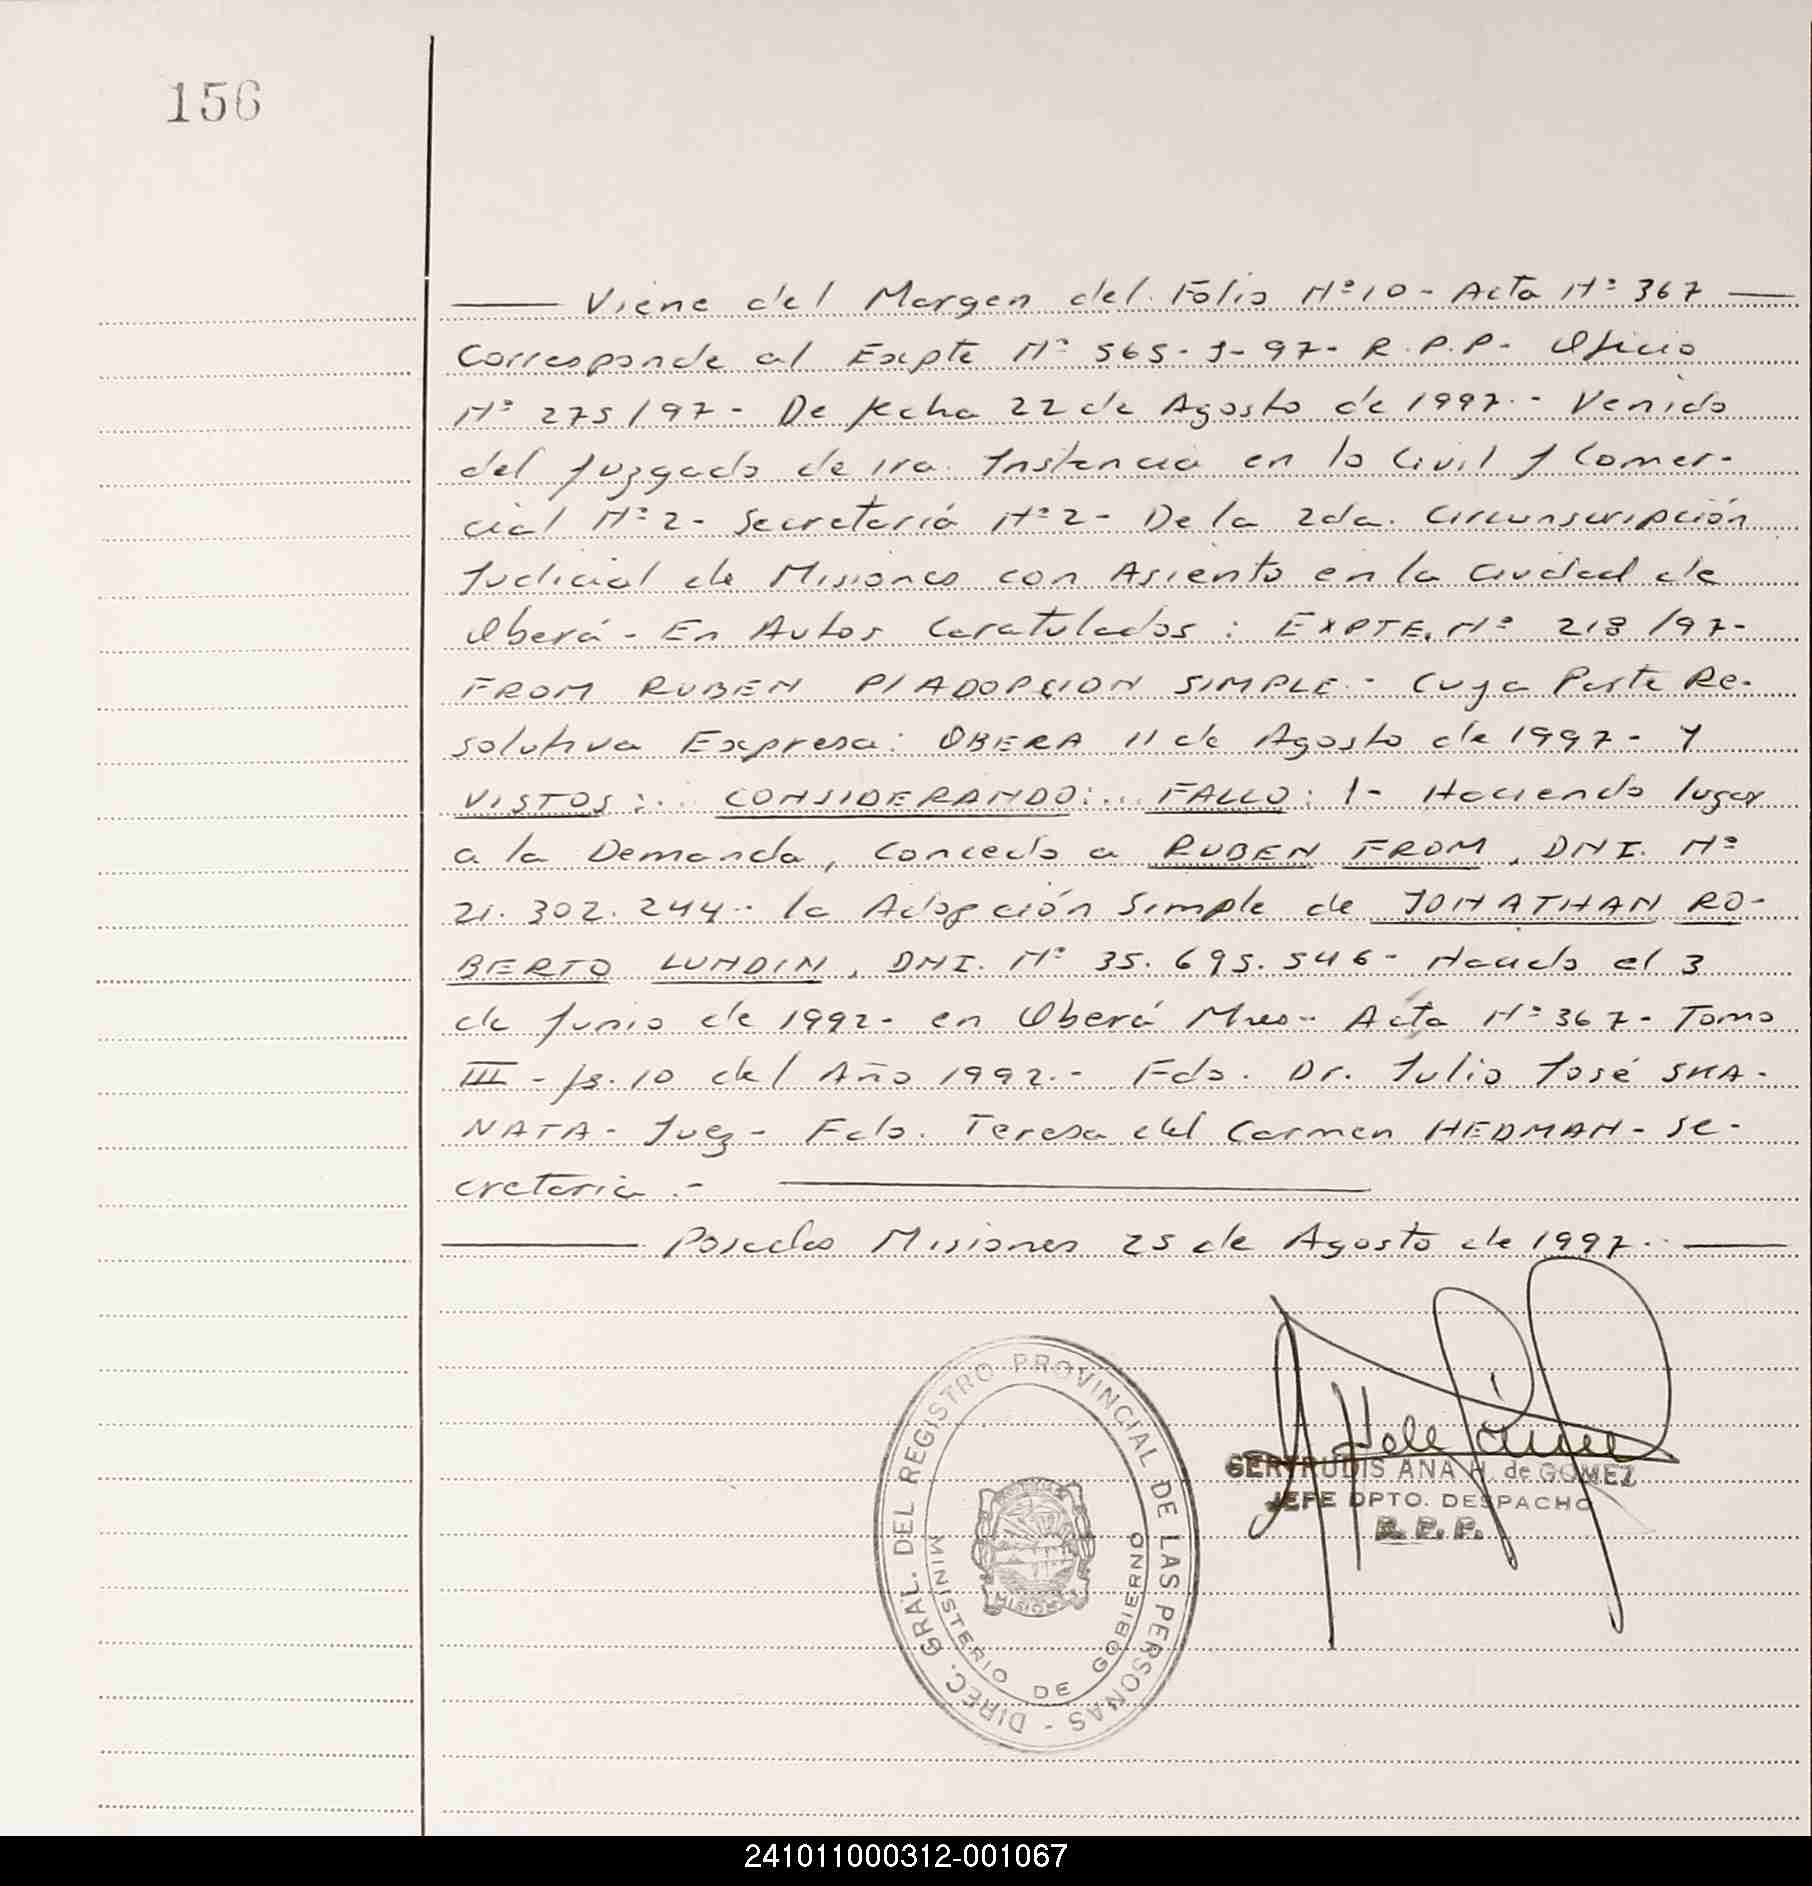 156
Viene del Margen del Folio Nº 10 - Acta Nº 367
Corresponde al Expte Nº 565-J-97- R.P.P- Oficio
Nº 275/97- De fecha 22 de Agosto de 1997.- Venido
del Juzgado de 1ra. Instancia en lo Civil y Comer-
cial Nº 2- Secretaría Nº 2- De la 2da. Circunscripción
Judicial de Misiones con Asiento en la Ciudad de
Oberá - En Autos Caratulados: EXPTE. Nº 218/97-
FROM RUBEN P/ADOPCION SIMPLE.- Cuya Parte Re-
solutiva Expresa: OBERA 11 de Agosto de 1997- Y
VISTOS:... CONSIDERANDO:... FALLO: 1- Haciendo lugar
a la Demanda, Concedo a RUBEN FROM, DNI. Nº
21.302.244.- la Adopción Simple de JONATHAN RO-
BERTO LUNDIN, DNI. Nº 35.695.546- Nacido el 3
de Junio de 1992- en Oberá Mnes.- Acta Nº 367- Tomo
III - fs. 10 del Año 1992.- Fdo. Dr. Julio José SKA-
NATA- Juez- Fdo. Teresa del Carmen HEDMAN- Se-
cretaria.-
Posadas Misiones 25 de Agosto de 1997.-
DIREC. GRAL. DEL REGISTRO PROVINCIAL DE LAS PERSONAS -
MINISTERIO DE GOBIERNO
MISIONES
GERTRUDIS ANA H. de GOMEZ
JEFE DPTO. DESPACHO
R.P.P.
241011000312-001067